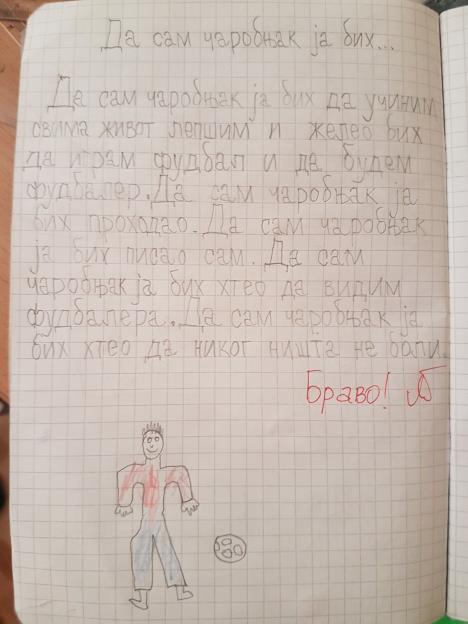 Да сам чаробњак ја бих...
Да сам чаробњак ја бих да учиним
свима живот лепшим и желео бих
да играм фудбал и да будем
фудбалер. Да сам чаробњак ја
бих проходао. Да сам чаробњак
ја бих писао сам. Да сам
чаробњак ја бих хтео да видим
фудбалера. Да сам чаробњак ја
бих хтео да никог ништа не боли.
Браво!